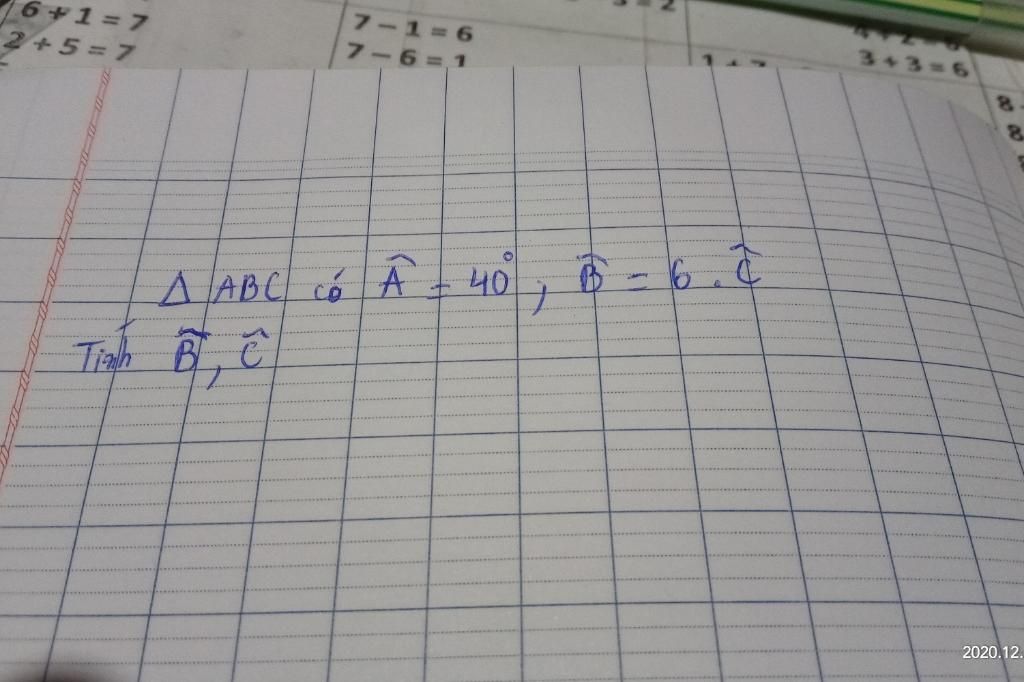 6 + 1 = 7
2 + 5 = 7
7 − 1 = 6
7 − 6 = 1
3 + 3 = 6
8
8
Δ ABC có Â = 40°, B̂ = 6 . Ĉ
Tính B̂, Ĉ
2020.12.